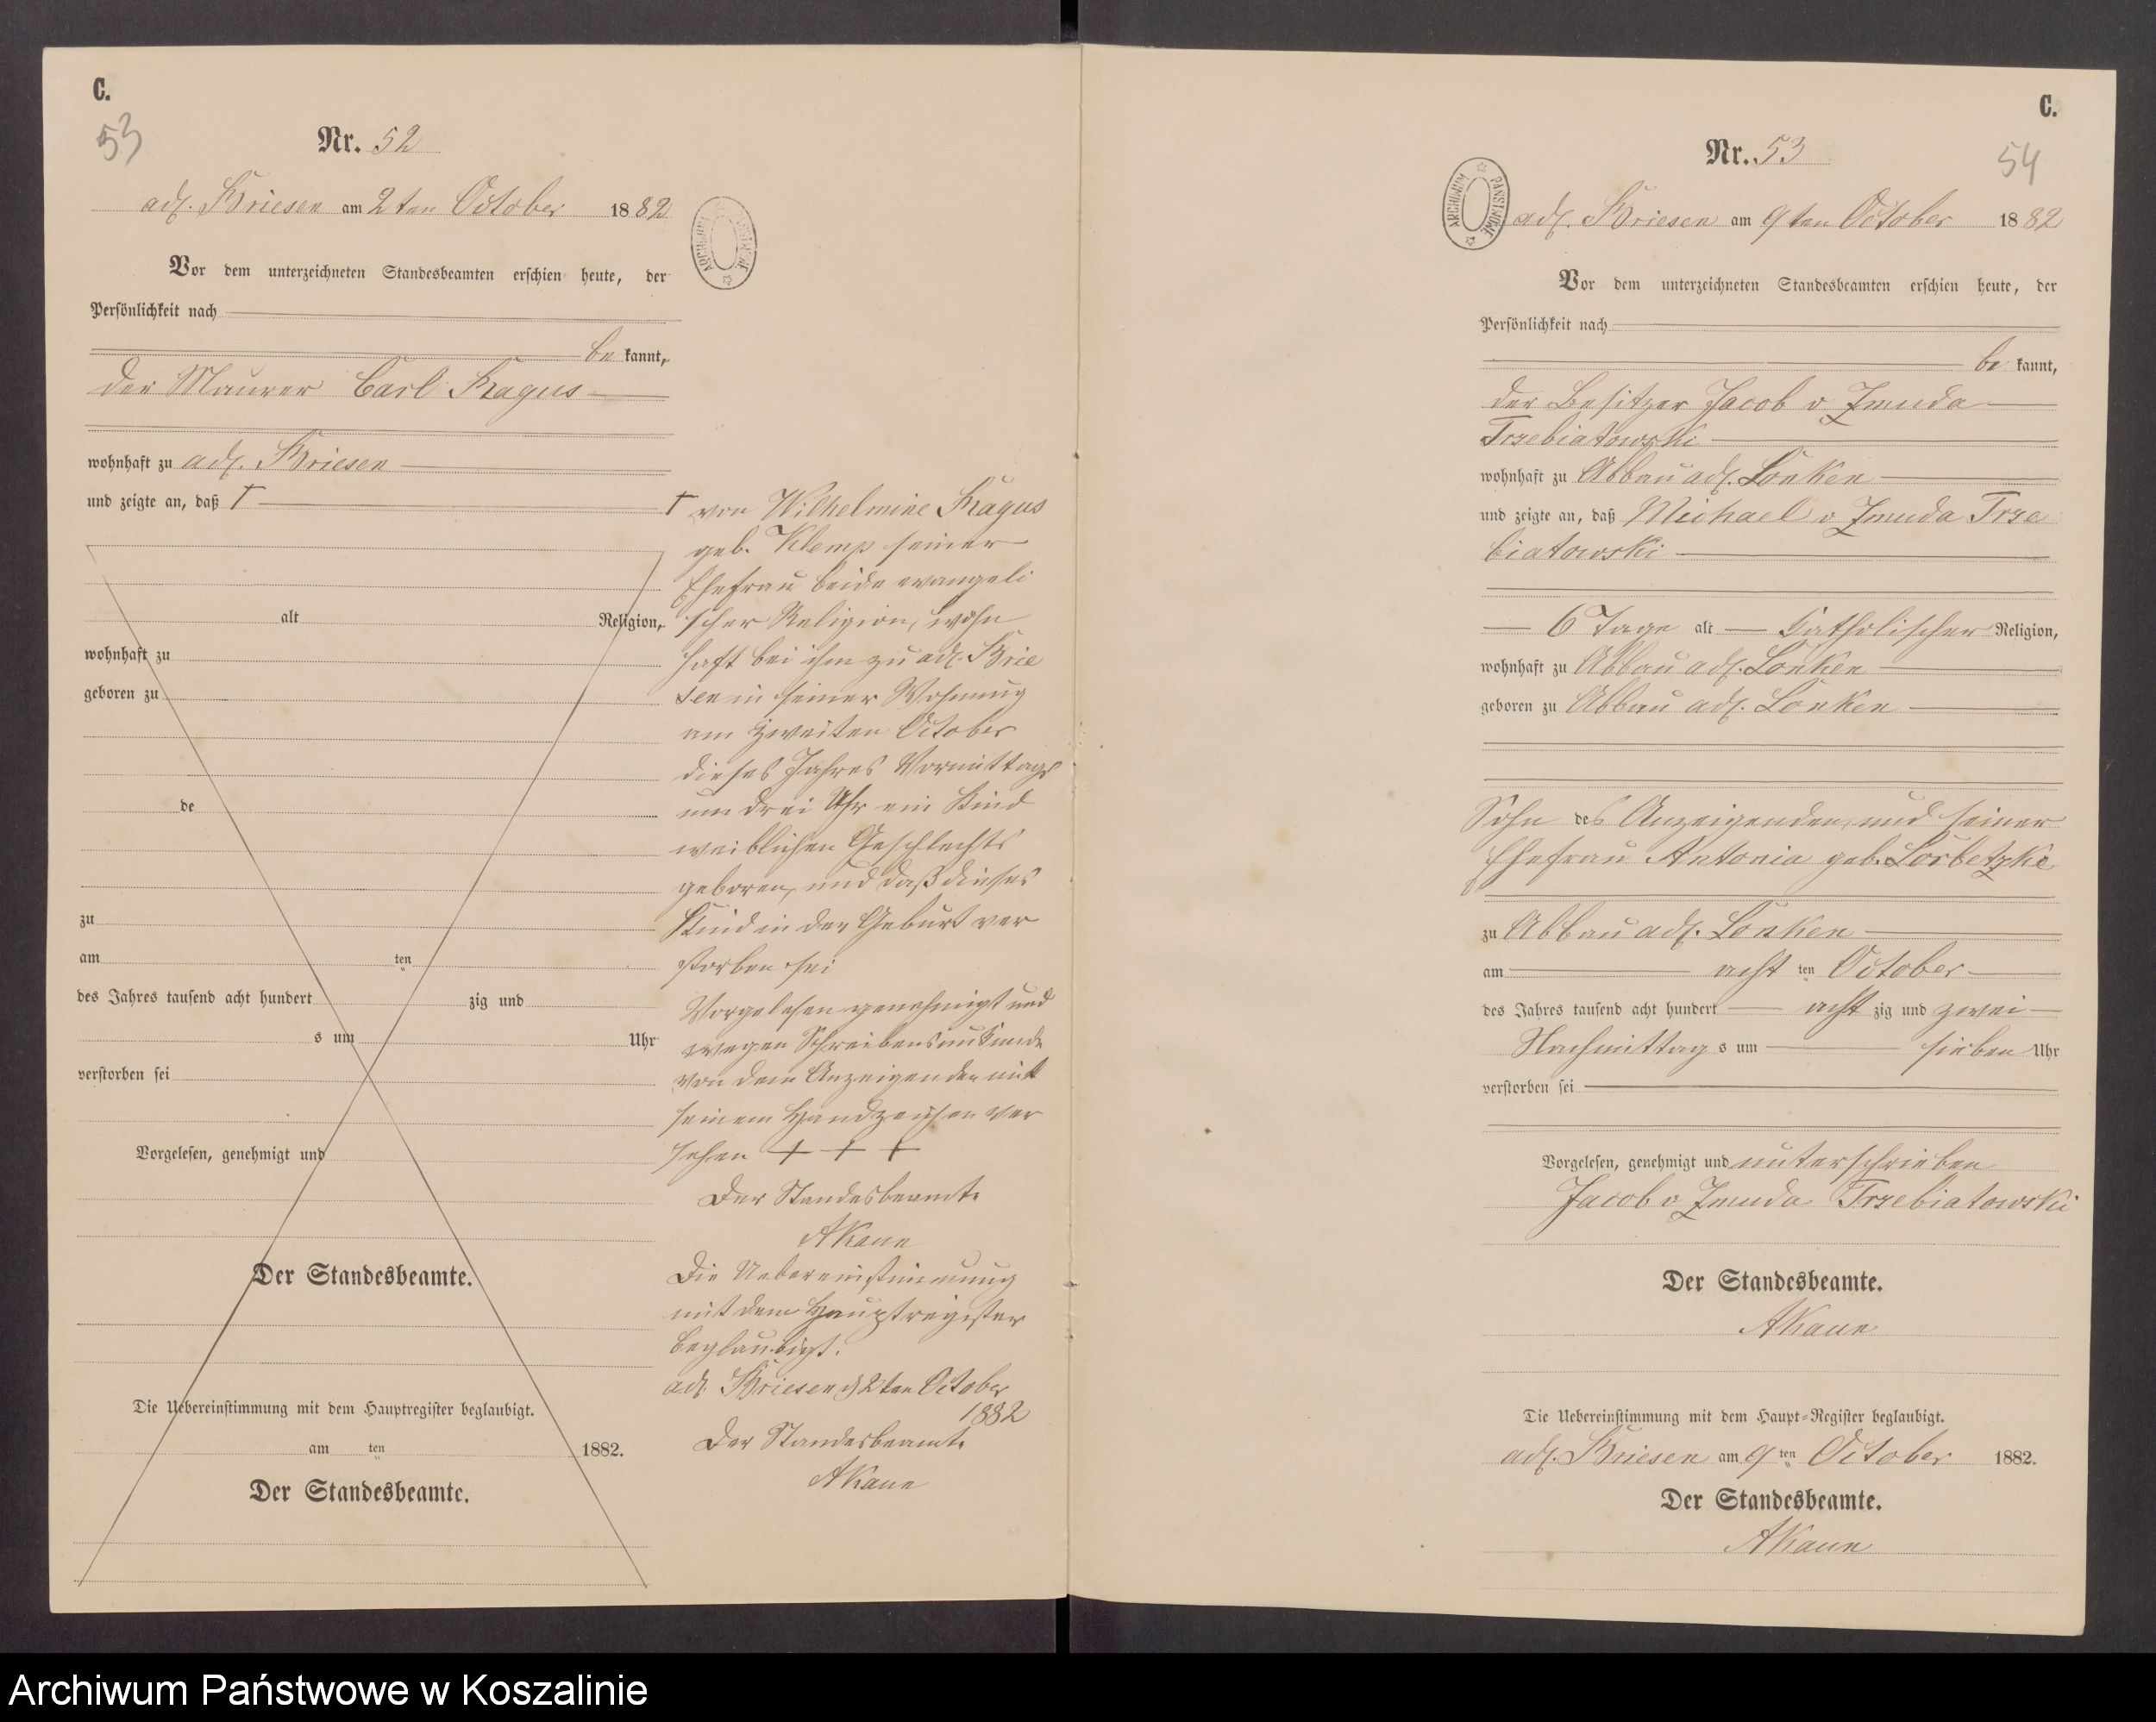 C.
53
Nr. 52
adl. Briesen am 2ten October 1882
Vor dem unterzeichneten Standesbeamten erschien heute, der
Persönlichkeit nach
be kannt,
der Maurer Carl Kragus
wohnhaft zu adl. Briesen
und zeigte an, daß †
alt Religion,
wohnhaft zu
geboren zu
de
zu
am ten
des Jahres tausend acht hundert zig und
s um Uhr
verstorben sei
Vorgelesen, genehmigt und
Der Standesbeamte.
Die Uebereinstimmung mit dem Hauptregister beglaubigt.
am ten 1882.
Der Standesbeamte.
ARCHIWUM PAŃSTWOWE
† von Wilhelmine Kragus
geb. Klemp seiner
Ehefrau beide evangeli
scher Religion, wohn
haft bei ihm zu adl. Brie
sen in seiner Wohnung
am zweiten October
dieses Jahres Vormittags
um drei Uhr ein Kind
weiblichen Geschlechts
geboren, und daß dieses
Kind in der Geburt ver
storben sei
Vorgelesen genehmigt und
wegen Schreibensunkunde
von dem Anzeigenden mit
seinem Handzeichen ver
sehen + + +
Der Standesbeamte
AKaun
Die Uebereinstimmung
mit dem Hauptregister
beglaubigt.
adl. Briesen d 2ten October
1882
Der Standesbeamte
AKaun
C.
54
Nr. 53
ARCHIWUM PAŃSTWOWE
adl. Briesen am 9ten October 1882
Vor dem unterzeichneten Standesbeamten erschien heute, der
Persönlichkeit nach
be kannt,
der Besitzer Jacob v Zmuda
Trzebiatowski
wohnhaft zu Abbau adl. Lonken
und zeigte an, daß Michael v Zmuda Trze
biatowski
6 Tage alt katholischer Religion,
wohnhaft zu Abbau adl. Lonken
geboren zu Abbau adl. Lonken
Sohn des Anzeigenden und seiner
Ehefrau Antonia geb. Lorbetzke
zu Abbau adl. Lonken
am acht ten October
des Jahres tausend acht hundert acht zig und zwei
Nachmittag s um sieben Uhr
verstorben sei
Vorgelesen, genehmigt und unterschrieben
Jacob v Zmuda Trzebiatowski
Der Standesbeamte.
AKaun
Die Uebereinstimmung mit dem Haupt-Register beglaubigt.
adl. Briesen am 9 ten October 1882.
Der Standesbeamte.
AKaun
Archiwum Państwowe w Koszalinie